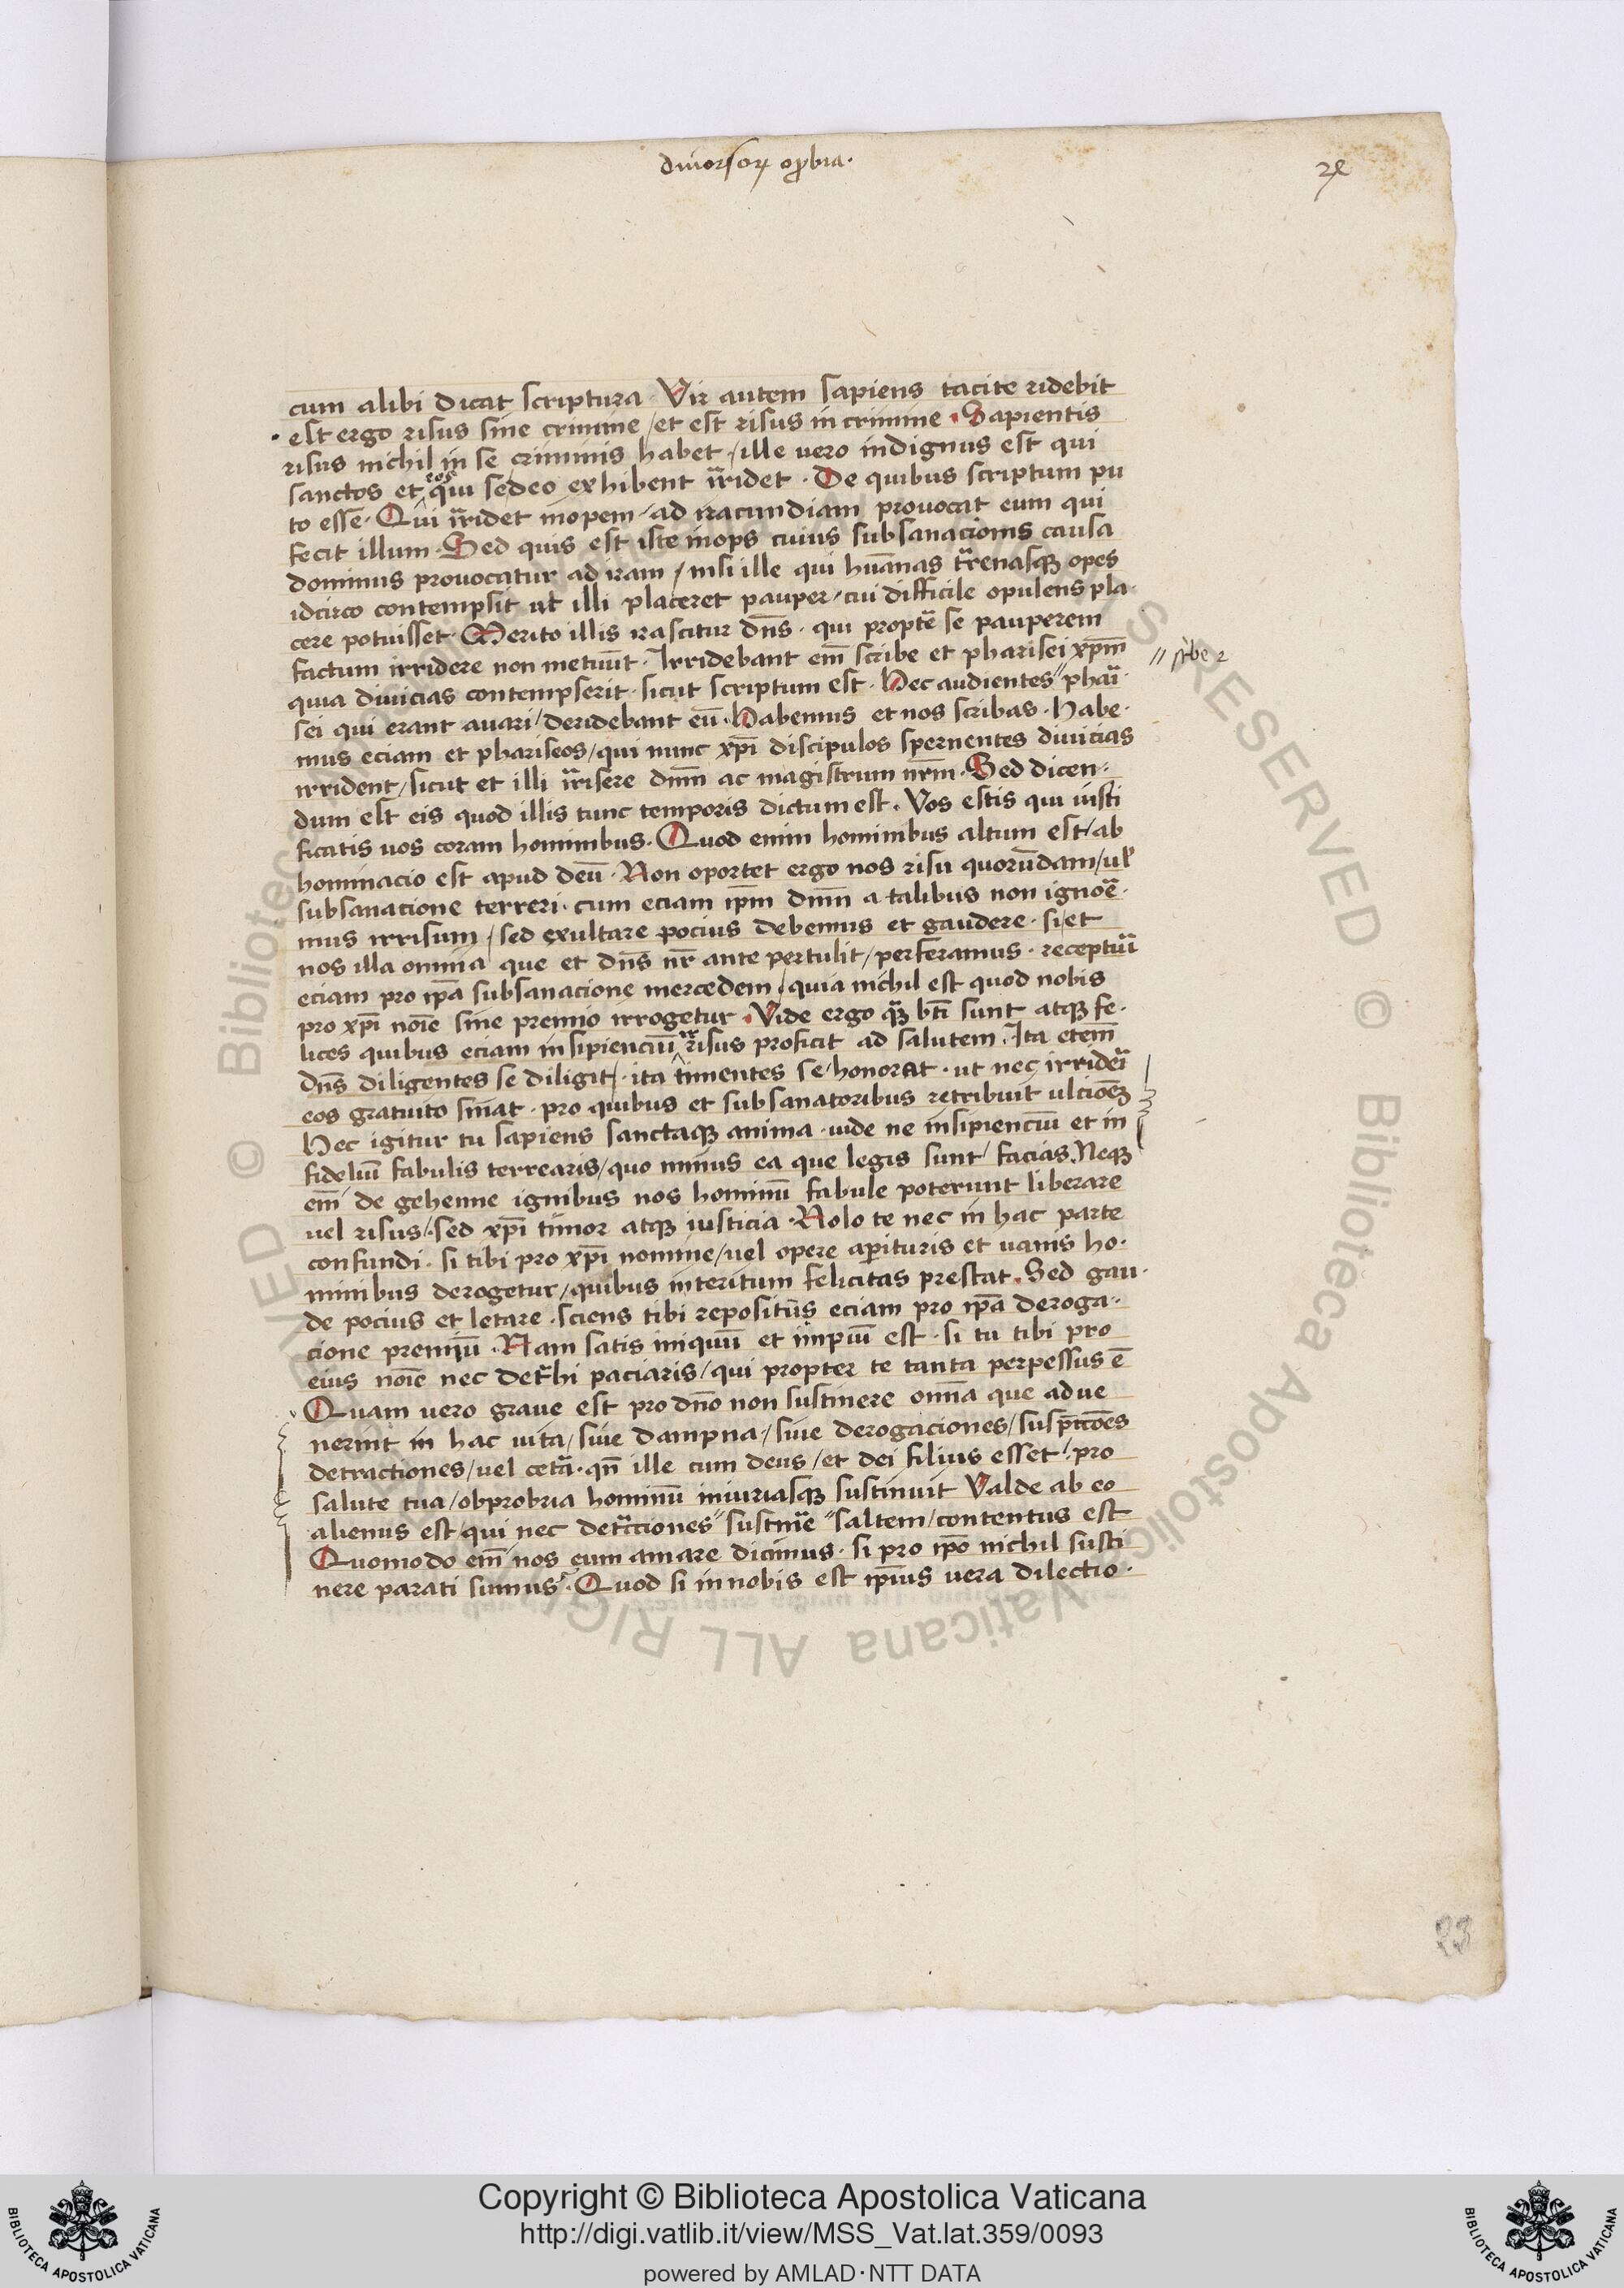 diuorsoꝝ oꝓbria.
cum alibi dicat scriptura Vir autem sapiens tacite ridebit
est ergo risus sine crimine / et est risus in crimine . Sapientis
risus nichil in se criminis habet / ille uero indignus est qui
sanctos et eos qͥui se deo exhibent irͣridet . De quibus scriptum pu
to esse . Qui irͣridet inopem / ad iracundiam prouocat eum qui
fecit illum . Sed quis est iste inops cuius subsanacionis causa
dominus prouocatur ad iram / nisi ille qui hūanas trͣenasqꝫ opes
idcirco contempsit ut illi placeret pauper / cui difficile opulens pla
cere potuisset . Merito illis irascitur dn̄s . qui propte᷑ se pauperem
factum irridere non metuūt . Irridebant em̄ scribe et pharisei xp̄m
quia diuicias contempserit . sicut scriptum est . Hec audientes // phaͥi
sei qui erant auari / deridebant eū . Habemus et nos scribas . Habe
mus eciam et phariseos / qui nunc xp̄i discipulos spernentes diuicias
irrident / sicut et illi irͣrisere dn̄m ac magistrum nr̄m . Sed dicen
dum est eis quod illis tunc temporis dictum est . Vos estis qui iusti
ficatis uos coram hominibus . Quod enim hominibus altum est / ab
hominacio est apud deū . Non oportet ergo nos risu quorūdam / ul̉
subsanacione terreri . cum eciam ip̄m dn̄m a talibus non ignore᷑
mus irrisum / sed exultare pocius debemus et gaudere . si et
nos illa omnia que et dn̄s nr̄ ante pertulit / perferamus . receptuͥi
eciam pro ip̄a subsanacione mercedem / quia nichil est quod nobis
pro xp̄i noīe sine premio irrogetur . Vide ergo qͣꝫ bt̄i sunt atqꝫ fe
lices quibus eciam insipienciū irrisus proficit ad salutem . Ita etem̄
dn̄s diligentes se diligit / . ita timentes se honorat . ut nec irrideͥi
eos gratuito sinat . pro quibus et subsanatoribus retribuit ulcionē
Hec igitur tu sapiens sanctaqꝫ anima . uide ne insipienciū et in
fideliū fabulis terrearis / quo minus ea que legis sunt / facias . Neqꝫ
em̄ de gehenne ignibus nos hominū fabule poterunt liberare
uel risus / . sed xp̄i timor atqꝫ iusticia . Nolo te nec in hac parte
confundi . si tibi pro xp̄i nomine / uel opere aꝑituris et uanis ho
minibus derogetur / quibus interitum felicitas prestat . Sed gau
de pocius et letare . sciens tibi repositūs eciam pro ip̄a deroga
cione premiū . Nam satis iniquū et impiū est . si tu tibi pro
eius noīe nec detrͣhi paciaris / qui propter te tanta perpessus ē
Quam uero graue est pro dn̄o non sustinere omīa que adue
nerint in hac uita / siue dampna / siue derogaciones / susp̄icōes
detractiones / uel cetaͤ . qn̄ ille cum deus / et dei filius esset / pro
salute tua / obprobria hominū iniuriasqꝫ sustinuit Valde ab eo
alienus est / qui nec detrͣcciones // sustine᷑ // saltem / contentus est
Quomodo em̄ nos eum amare dicimus . si pro ip̄o nichil susti
nere parati sumus . Quod si in nobis est ip̄ius uera dilectio .
// sc̀be ⁊
23
Copyright © Biblioteca Apostolica Vaticana
http://digi.vatlib.it/view/MSS_Vat.lat.359/0093
powered by AMLAD·NTT DATA
BIBLIOTECA APOSTOLICA VATICANA
BIBLIOTECA APOSTOLICA VATICANA